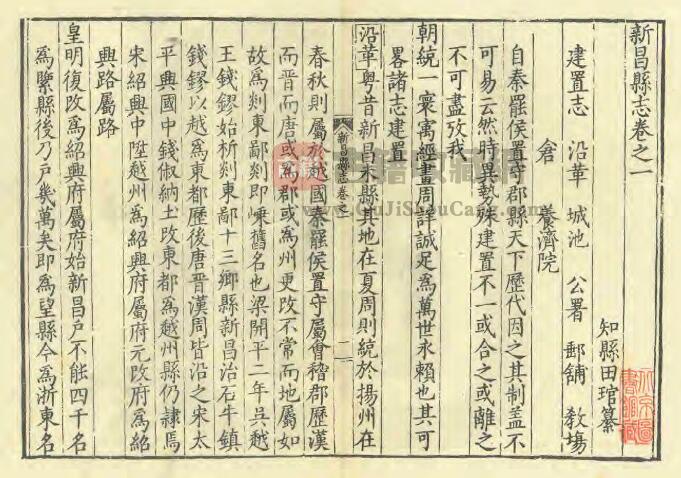 新昌縣志卷之一
知縣田琯纂
建置志　沿革　城池　公署　郵舖　教塲
倉　養濟院
自秦罷侯置守郡縣天下歷代因之其制盖不
可易云然時異勢殊建置不一或合之或離之
不可盡攷我
朝統一寰㝢經畫周詳誠足爲萬世永賴也其可
畧諸志建置
沿革粤昔新昌未縣其地在夏周則統於揚州在
新昌縣志卷之一
二
春秋則屬於越國秦罷侯置守屬會稽郡歷漢
而晋而唐或爲郡或爲州更改不常而地屬如
故爲剡東鄙剡即嵊舊名也梁開平二年吳越
王錢鏐始析剡東鄙十三鄉縣新昌治石牛鎮
錢鏐以越爲東都歷後唐晋漢周皆沿之宋太
平興國中錢俶納土改東都爲越州縣仍隸焉
宋紹興中陞越州爲紹興府屬府元改府爲紹
興路屬路
皇明復改爲紹興府屬府始新昌户不能四千名
爲緊縣後乃户幾萬矣即爲望縣今爲浙東名
古籍收藏網
www.GuJiShouCang.com